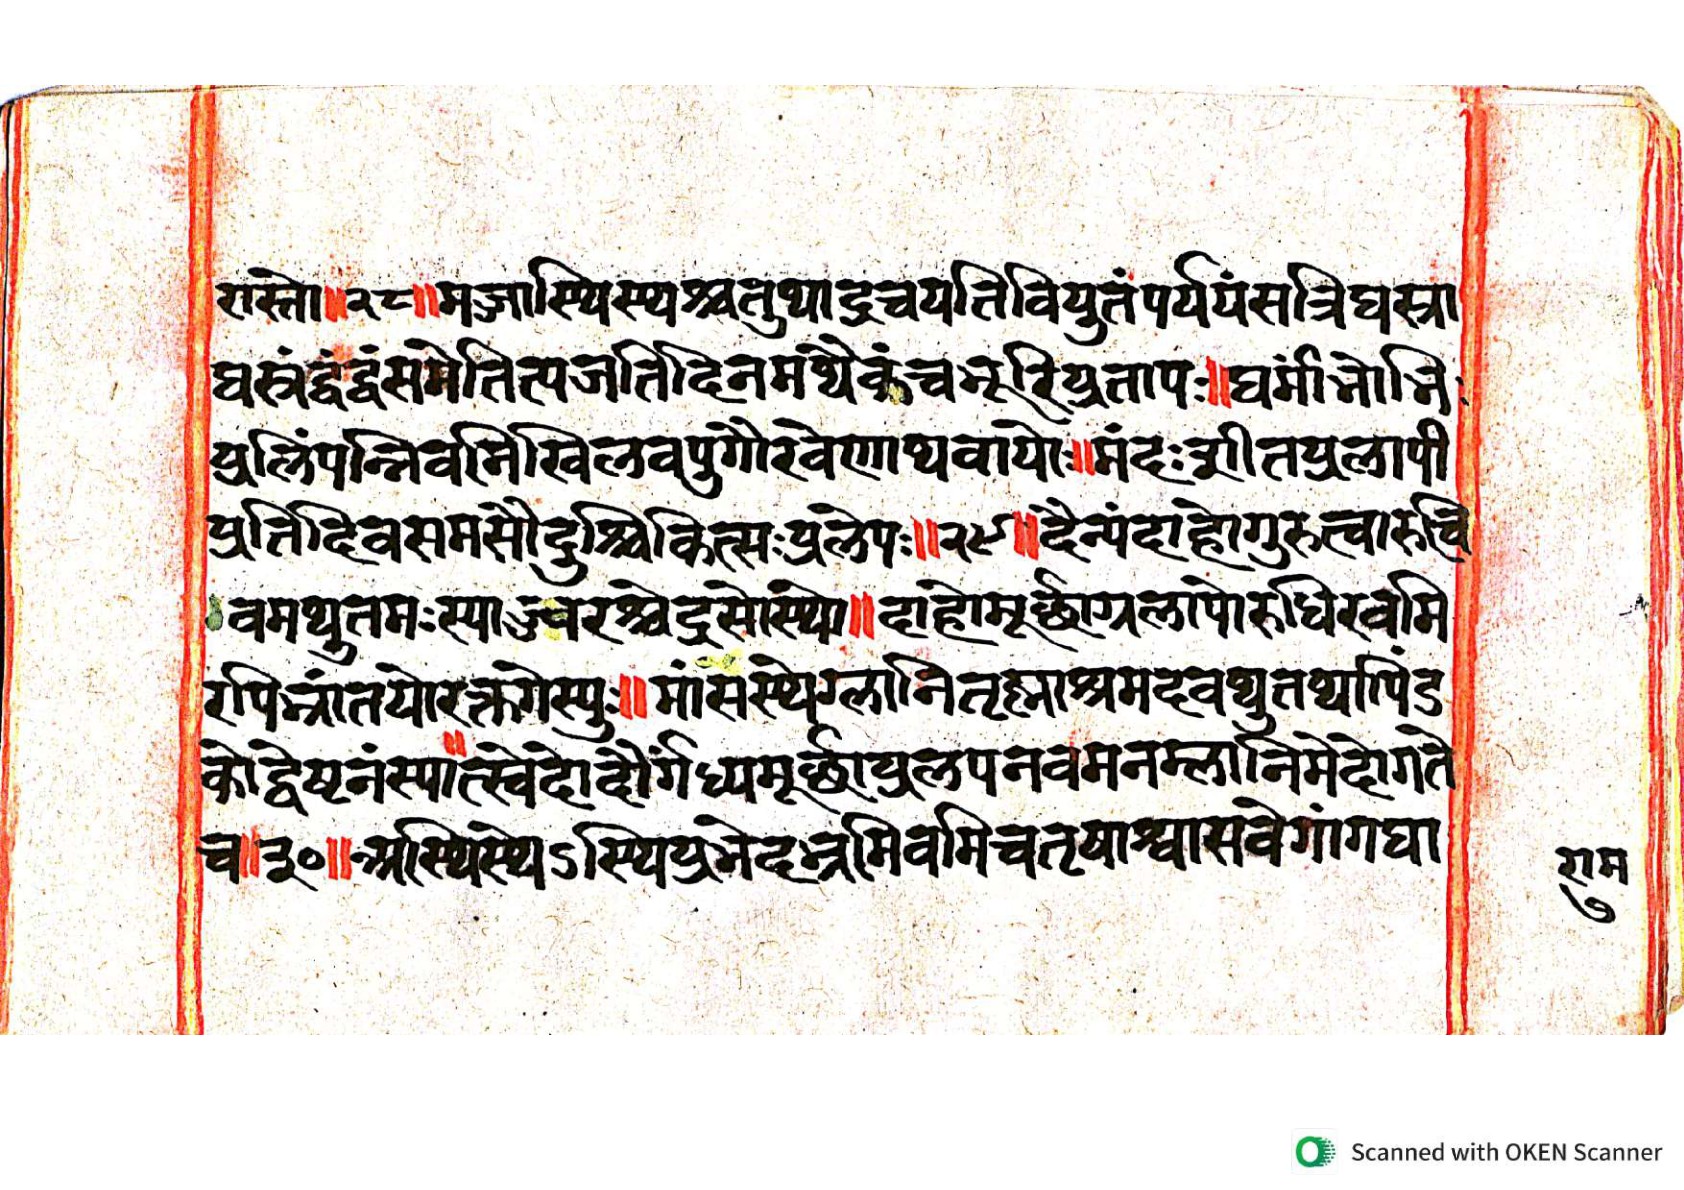 रास्तो॥२८॥मज्जास्थिस्थश्चतुथाद्रचयतिवियुतंपर्ययंसत्रिघस्रा
घस्रंद्वंद्वंसमेतित्यजतिदिनमथैकंचभूरिप्रतापः॥घर्मांभोभिः
प्रलिंपन्निवनिखिलवपुर्गौरवेणाथवायोः॥मंदःशीतप्रलापी
प्रतिदिवसमसौदुश्चिकित्सःप्रलेपः॥२९॥दैन्यंदाहोगुरुत्वारुचि
वमथुतमःस्याज्वरश्चेद्रसोस्थो॥दाहोमूर्छाप्रलापोरुधिरवमि
रपिभ्रांतयोरक्तगेस्युः॥मांसस्थेग्लानितृष्णाश्रमदवथुतथापिंड
कोद्वेष्टनंस्यात्॥स्वेदोदौर्गंध्यमूर्छाप्रलपनवमनम्लानिमेदोगते
च॥३०॥अस्थिस्थेऽस्थिप्रभेदभ्रमिवमिचतृषाश्वासवेगांगघा
राम
७
Scanned with OKEN Scanner